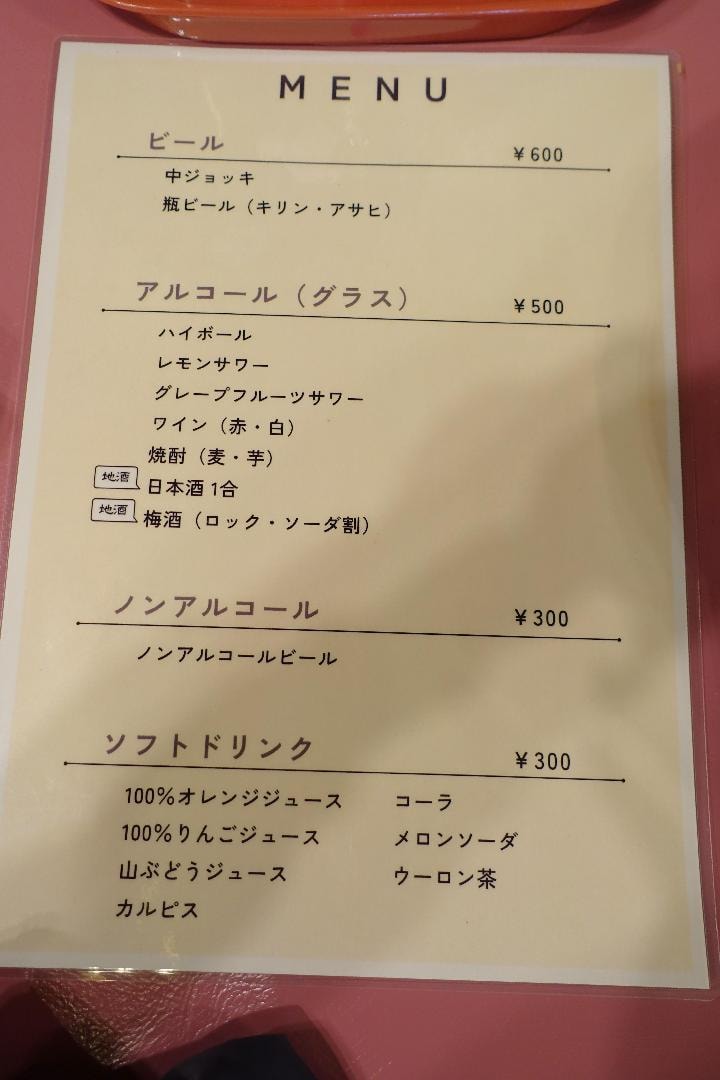 MENU
ビール ¥600
中ジョッキ
瓶ビール（キリン・アサヒ）
アルコール（グラス） ¥500
ハイボール
レモンサワー
グレープフルーツサワー
ワイン（赤・白）
焼酎（麦・芋）
地酒 日本酒 1合
地酒 梅酒（ロック・ソーダ割）
ノンアルコール ¥300
ノンアルコールビール
ソフトドリンク ¥300
100%オレンジジュース コーラ
100%りんごジュース メロンソーダ
山ぶどうジュース ウーロン茶
カルピス